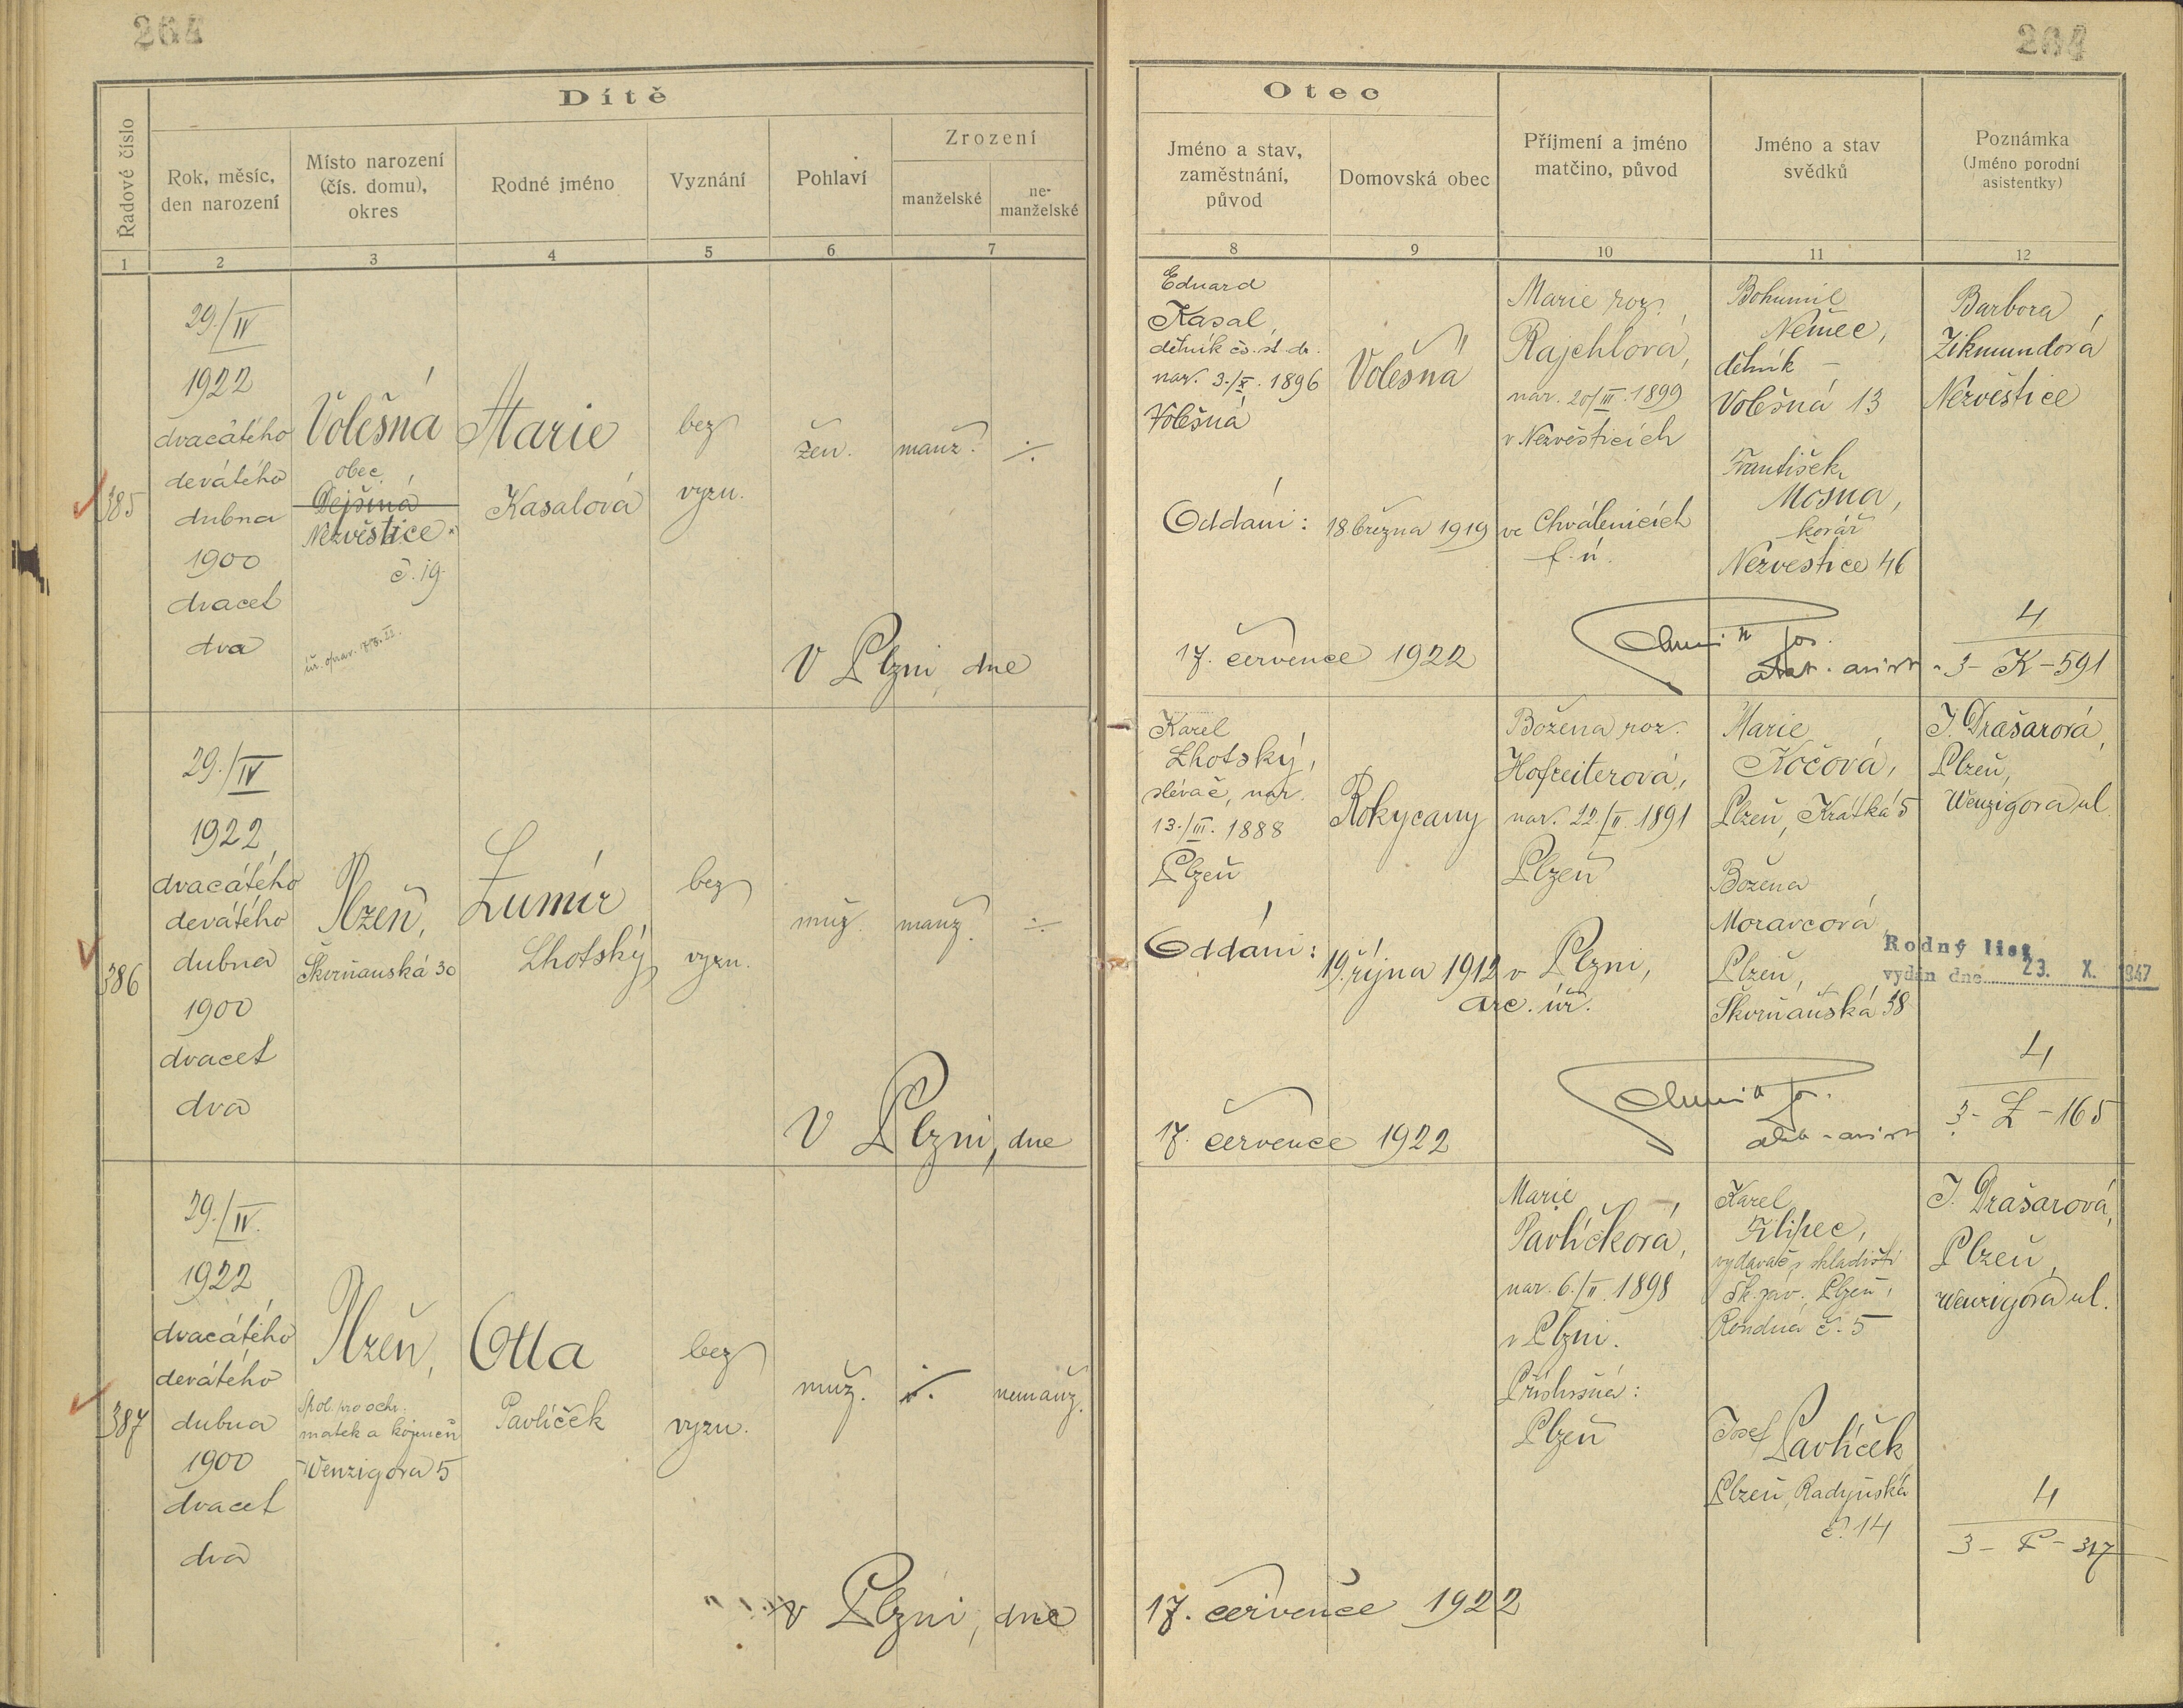 264
264
Dítě
Řadové číslo
Rok, měsíc,
den narození
Místo narození
(čís. domu),
okres
Rodné jméno
Vyznání
Pohlaví
Zrození
manželské
ne-
manželské
1 2 3 4 5 6 7
Otec
Jméno a stav,
zaměstnání,
původ
Domovská obec
Příjmení a jméno
matčino, původ
Jméno a stav
svědků
Poznámka
(Jméno porodní
asistentky)
8 9 10 11 12
385
29./IV
1922
dvacátého
devátého
dubna
1900
dvacet
dva
Volešná
obec
Nezvěstice
č. 19.
Marie
Kasalová
bez
vyzn.
žen.
manž.
÷
V Plzni, dne
Eduard
Kasal,
dělník čs. st. dr.
nar. 3./X. 1896
Volešná
Volešná
Marie roz.
Rajchlová,
nar. 20/III. 1899
v Nezvěsticích
Bohumil
Němec,
dělník –
Volešná 13
František
Mosna,
kovář
Nezvěstice 46
Barbora
Zikmundová
Nezvěstice
Oddáni: 18. března 1919 ve Chválenicích
f. ú.
17. července 1922
4
3 - K - 591
386
29./IV
1922
dvacátého
devátého
dubna
1900
dvacet
dva
Plzeň,
Škvrňanská 30
Lumír
Lhotský
bez
vyzn.
muž.
manž.
÷
V Plzni, dne
Karel
Lhotský,
slévač, nar.
13./III. 1888
Plzeň
Rokycany
Božena roz.
Hofreiterová,
nar. 22./II. 1891
Plzeň
Marie
Kočová,
Plzeň, Krátká 5
Božena
Moravcová
Plzeň,
Škvrňanská 38
J. Drašarová,
Plzeň,
Wenzigova ul.
Oddáni: 19. října 1912 v Plzni,
arc. úř.
Rodný list
vydán dne 23. X. 1947
17. července 1922
4
3 - L - 165
387
29./IV.
1922
dvacátého
devátého
dubna
1900
dvacet
dva
Plzeň,
Spol. pro ochr.
matek a kojenců
Wenzigova 5
Otta
Pavlíček
bez
vyzn.
muž.
÷
nemanž.
v Plzni, dne
Marie
Pavlíčková,
nar. 6./II. 1898
v Plzni.
Příslušná:
Plzeň
Karel
Filipec,
vydavač v skladišti
Šk. záv. Plzeň,
Rondná č. 5
Josef Pavlíček
Plzeň, Radyňská
č. 14
J. Drašarová,
Plzeň,
Wenzigova ul.
17. července 1922
4
3 - P - 317